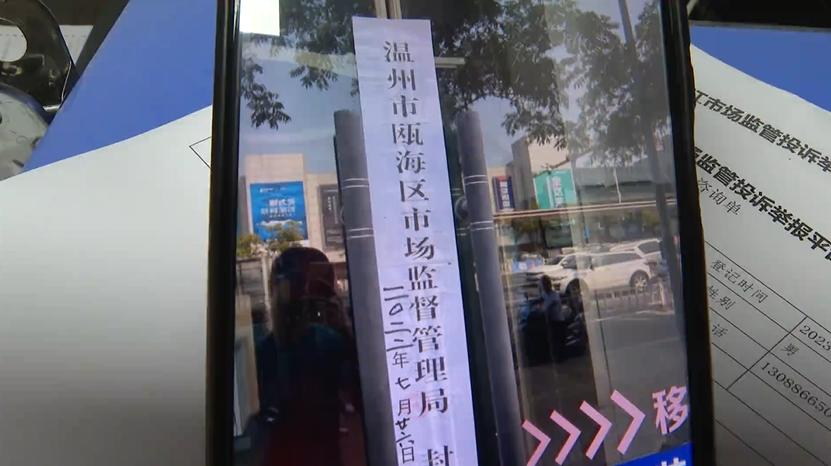 温州市瓯海区市场监督管理局 封
二〇二二年七月廿六日
移
江市场监管投诉举
监管投诉举报平
咨询单
登记时间
2023
性别
男
话
13088650